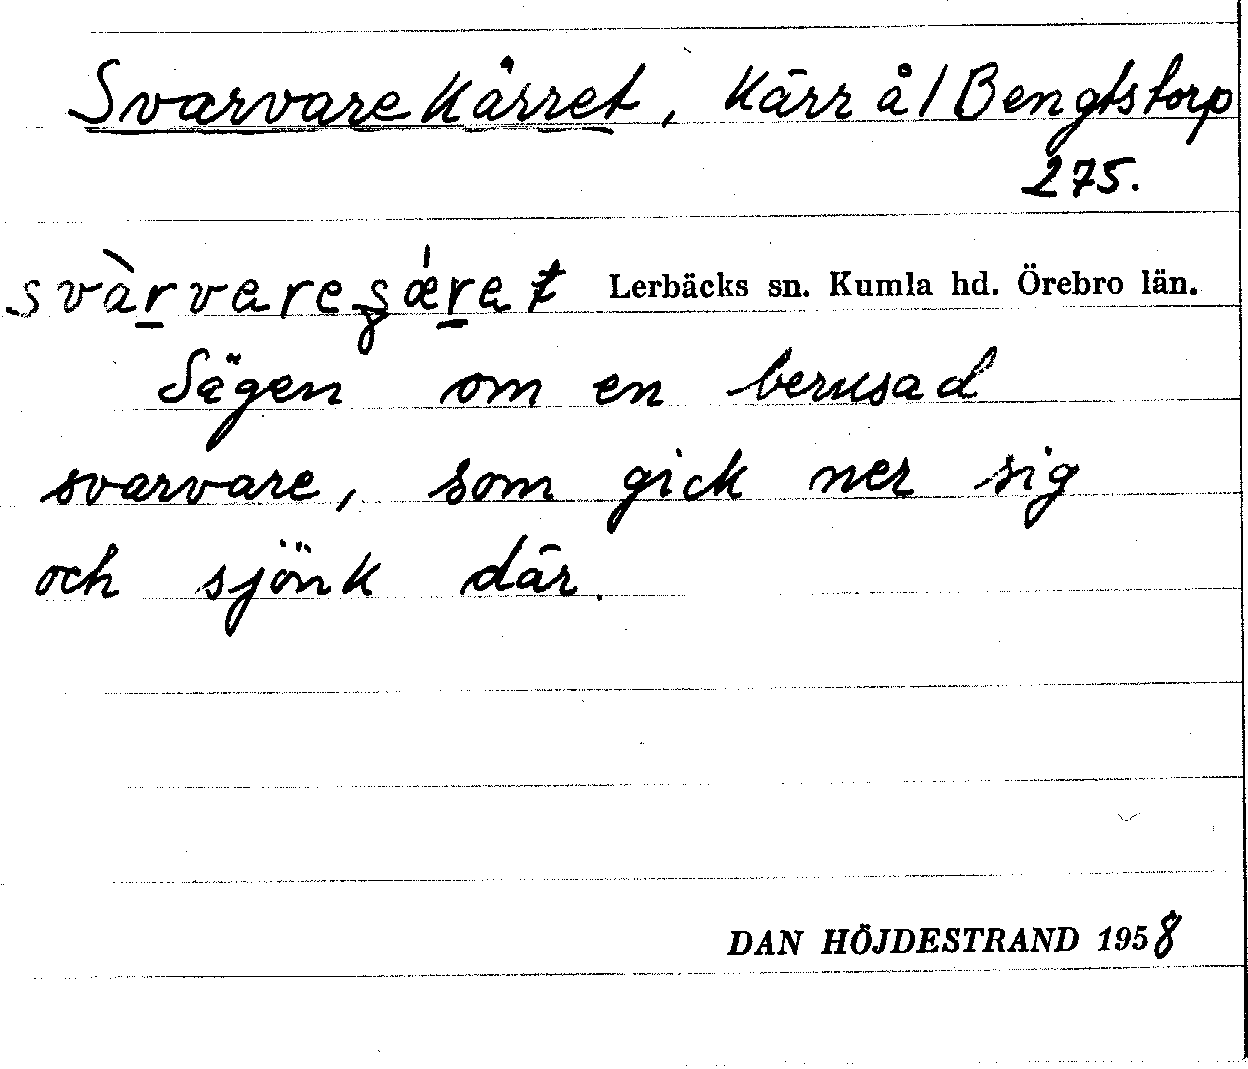 Svarvarekärret, Kärr å/Bengtstorp
275.
svàrvareʂǽret Lerbäcks sn. Kumla hd. Örebro län.
Sägen om en berusad
svarvare, som gick ner sig
och sjönk där.
DAN HÖJDESTRAND 1958